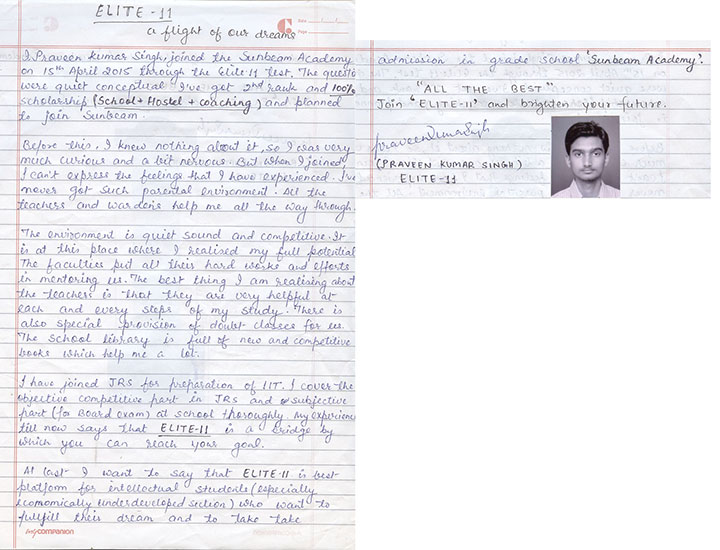 ELITE-11
a flight of our dreams
Date
Page
I, Praveen Kumar Singh, joined the Sunbeam Academy
on 15th April 2015 through the Elite-11 test. The questio
were quiet conceptual I've get 2nd rank and 100%
scholarship (School + Hostel + coaching) and planned
to join Sunbeam.
Before this, I knew nothing about it, so I was very
much curious and a bit nervous. But when I joined
I can't express the feelings that I have experienced. I've
never got such parental environment. All the
teachers and wardens help me all the way through.
The environment is quiet sound and competitive. It
is at this place where I realised my full potential
The faculties put all their hard works and efforts
in mentoring us. The best thing I am realising about
the teachers is that they are very helpful at
each and every steps of my study. There is
also special provision of doubt classes for us.
The school library is full of new and competitive
books which help me a lot.
I have joined JRS for preparation of IIT. I cover the
objective competitive part in JRS and subjective
part (for Board exam) at school thoroughly. My experience
till now says that ELITE-11 is a bridge by
which you can reach your goal.
At last I want to say that ELITE-11 is best
platform for intellectual students (especially
economically underdeveloped section) who want to
fullfill their dream and to take take
companion
admission in grade school 'Sunbeam Academy'.
"ALL THE BEST"
Join 'ELITE-11' and brighten your future.
praveenkumarsingh
(PRAVEEN KUMAR SINGH)
ELITE-11